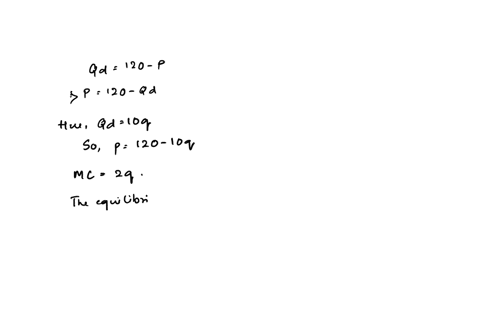 Qd = 120 - P
⇒ P = 120 - Qd
Here, Qd = 10q
So, p = 120 - 10q
MC = 2q.
The equilibri